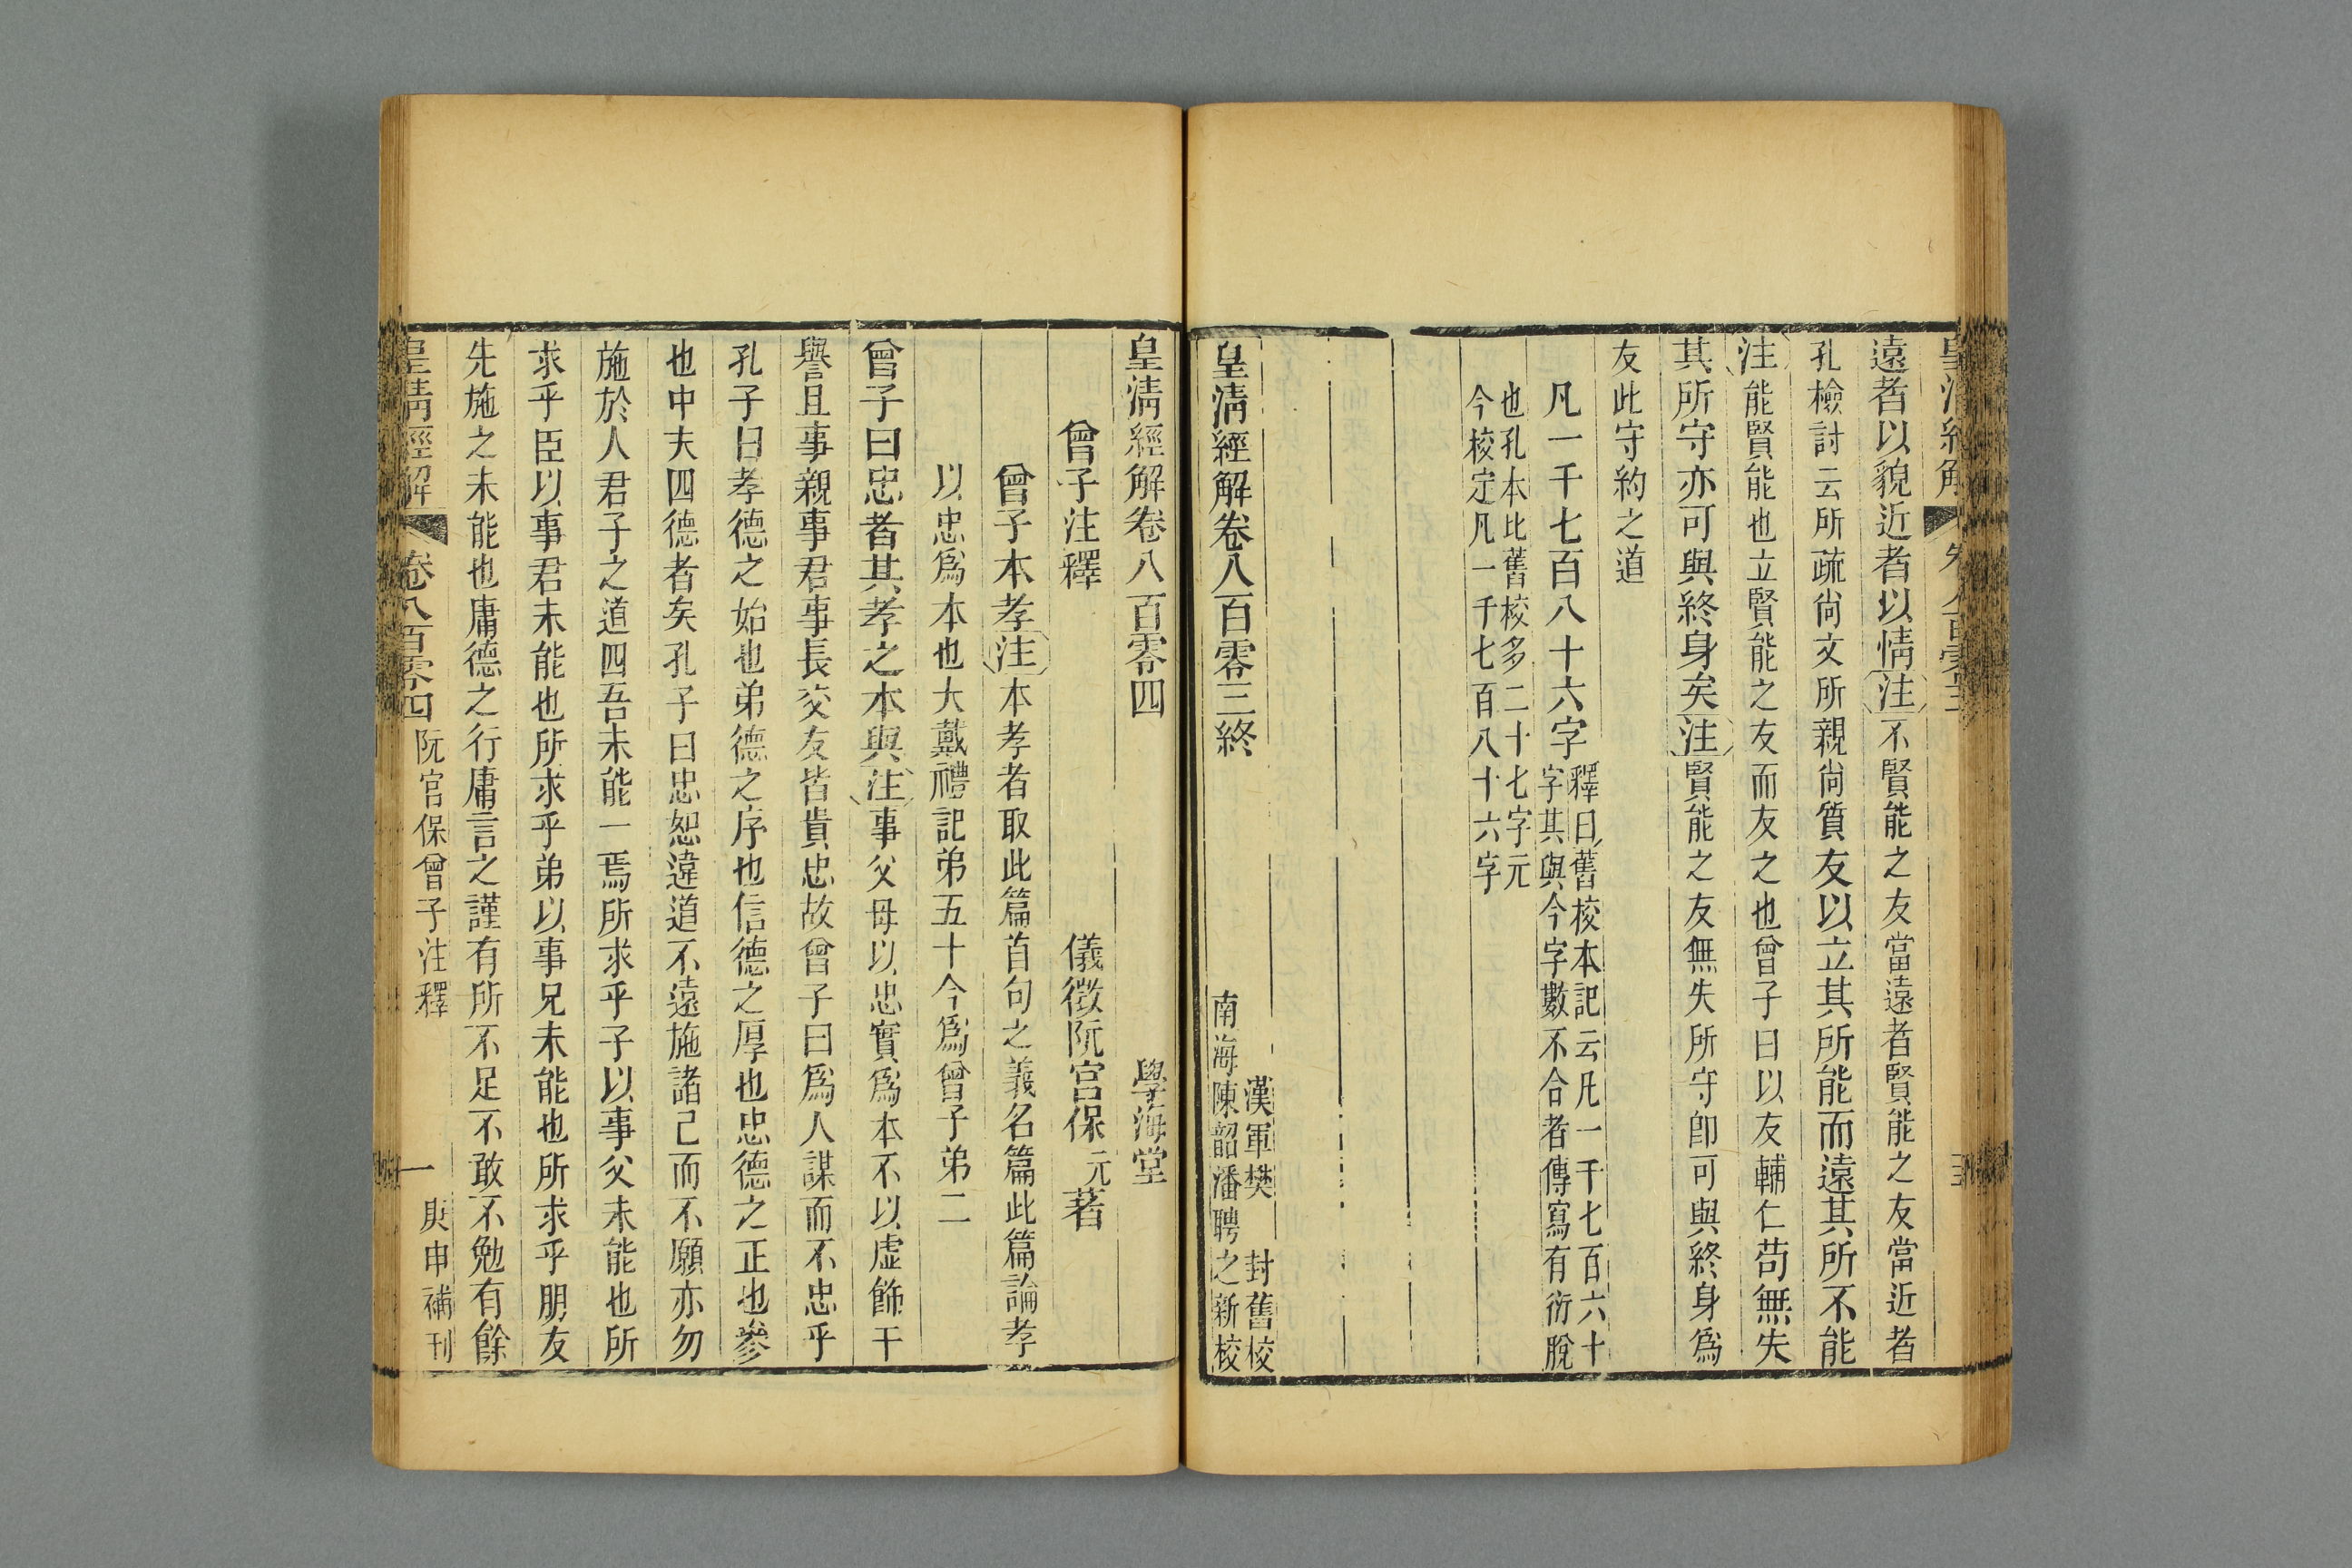 遠者以貌近者以情注不賢能之友當遠者賢能之友當近者
孔檢討云所疏尙文所親尙質友以立其所能而遠其所不能
注能賢能也立賢能之友而友之也曾子曰以友輔仁苟無失
其所守亦可與終身矣注賢能之友無失所守卽可與終身爲
友此守約之道
凡一千七百八十六字釋曰舊校本記云凡一千七百六十
字其與今字字數不合者傳寫有衍脫
也孔本比舊校多二十七字元
今校定凡一千七百八十六字
皇淸經解卷八百零三終
漢軍樊 封舊校
南海陳韶潘聘之新校
皇淸經解卷八百零四 學海堂
曾子注釋 儀徵阮宮保元著
曾子本孝注本孝者取此篇首句之義名篇此篇論孝
以忠爲本也大戴禮記弟五十今爲曾子弟二
曾子曰忠者其孝之本與注事父母以忠實爲本不以虛飾干
譽且事親事君事長交友皆貴忠故曾子曰爲人謀而不忠乎
孔子曰孝德之始也弟德之序也信德之厚也忠德之正也參
也中夫四德者矣孔子曰忠恕違道不遠施諸己而不願亦勿
施於人君子之道四吾未能一焉所求乎子以事父未能也所
求乎臣以事君未能也所求乎弟以事兄未能也所求乎朋友
先施之未能也庸德之行庸言之謹有所不足不敢不勉有餘
皇淸經解 卷八百零四 阮宮保曾子注釋 一 庚申補刊